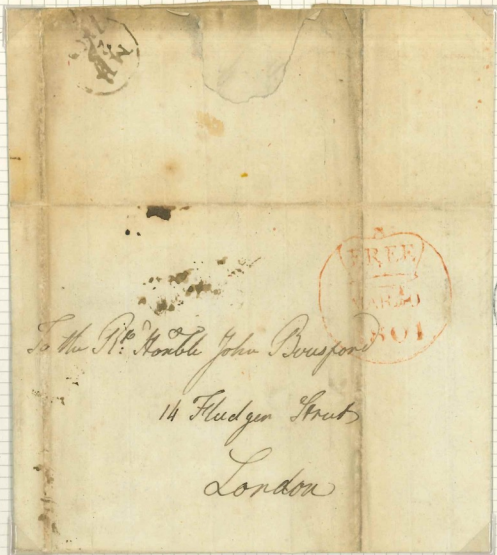 FREE
MAR
1801
To the Rt. Honble John Beresford
14 Fludyer Street
London